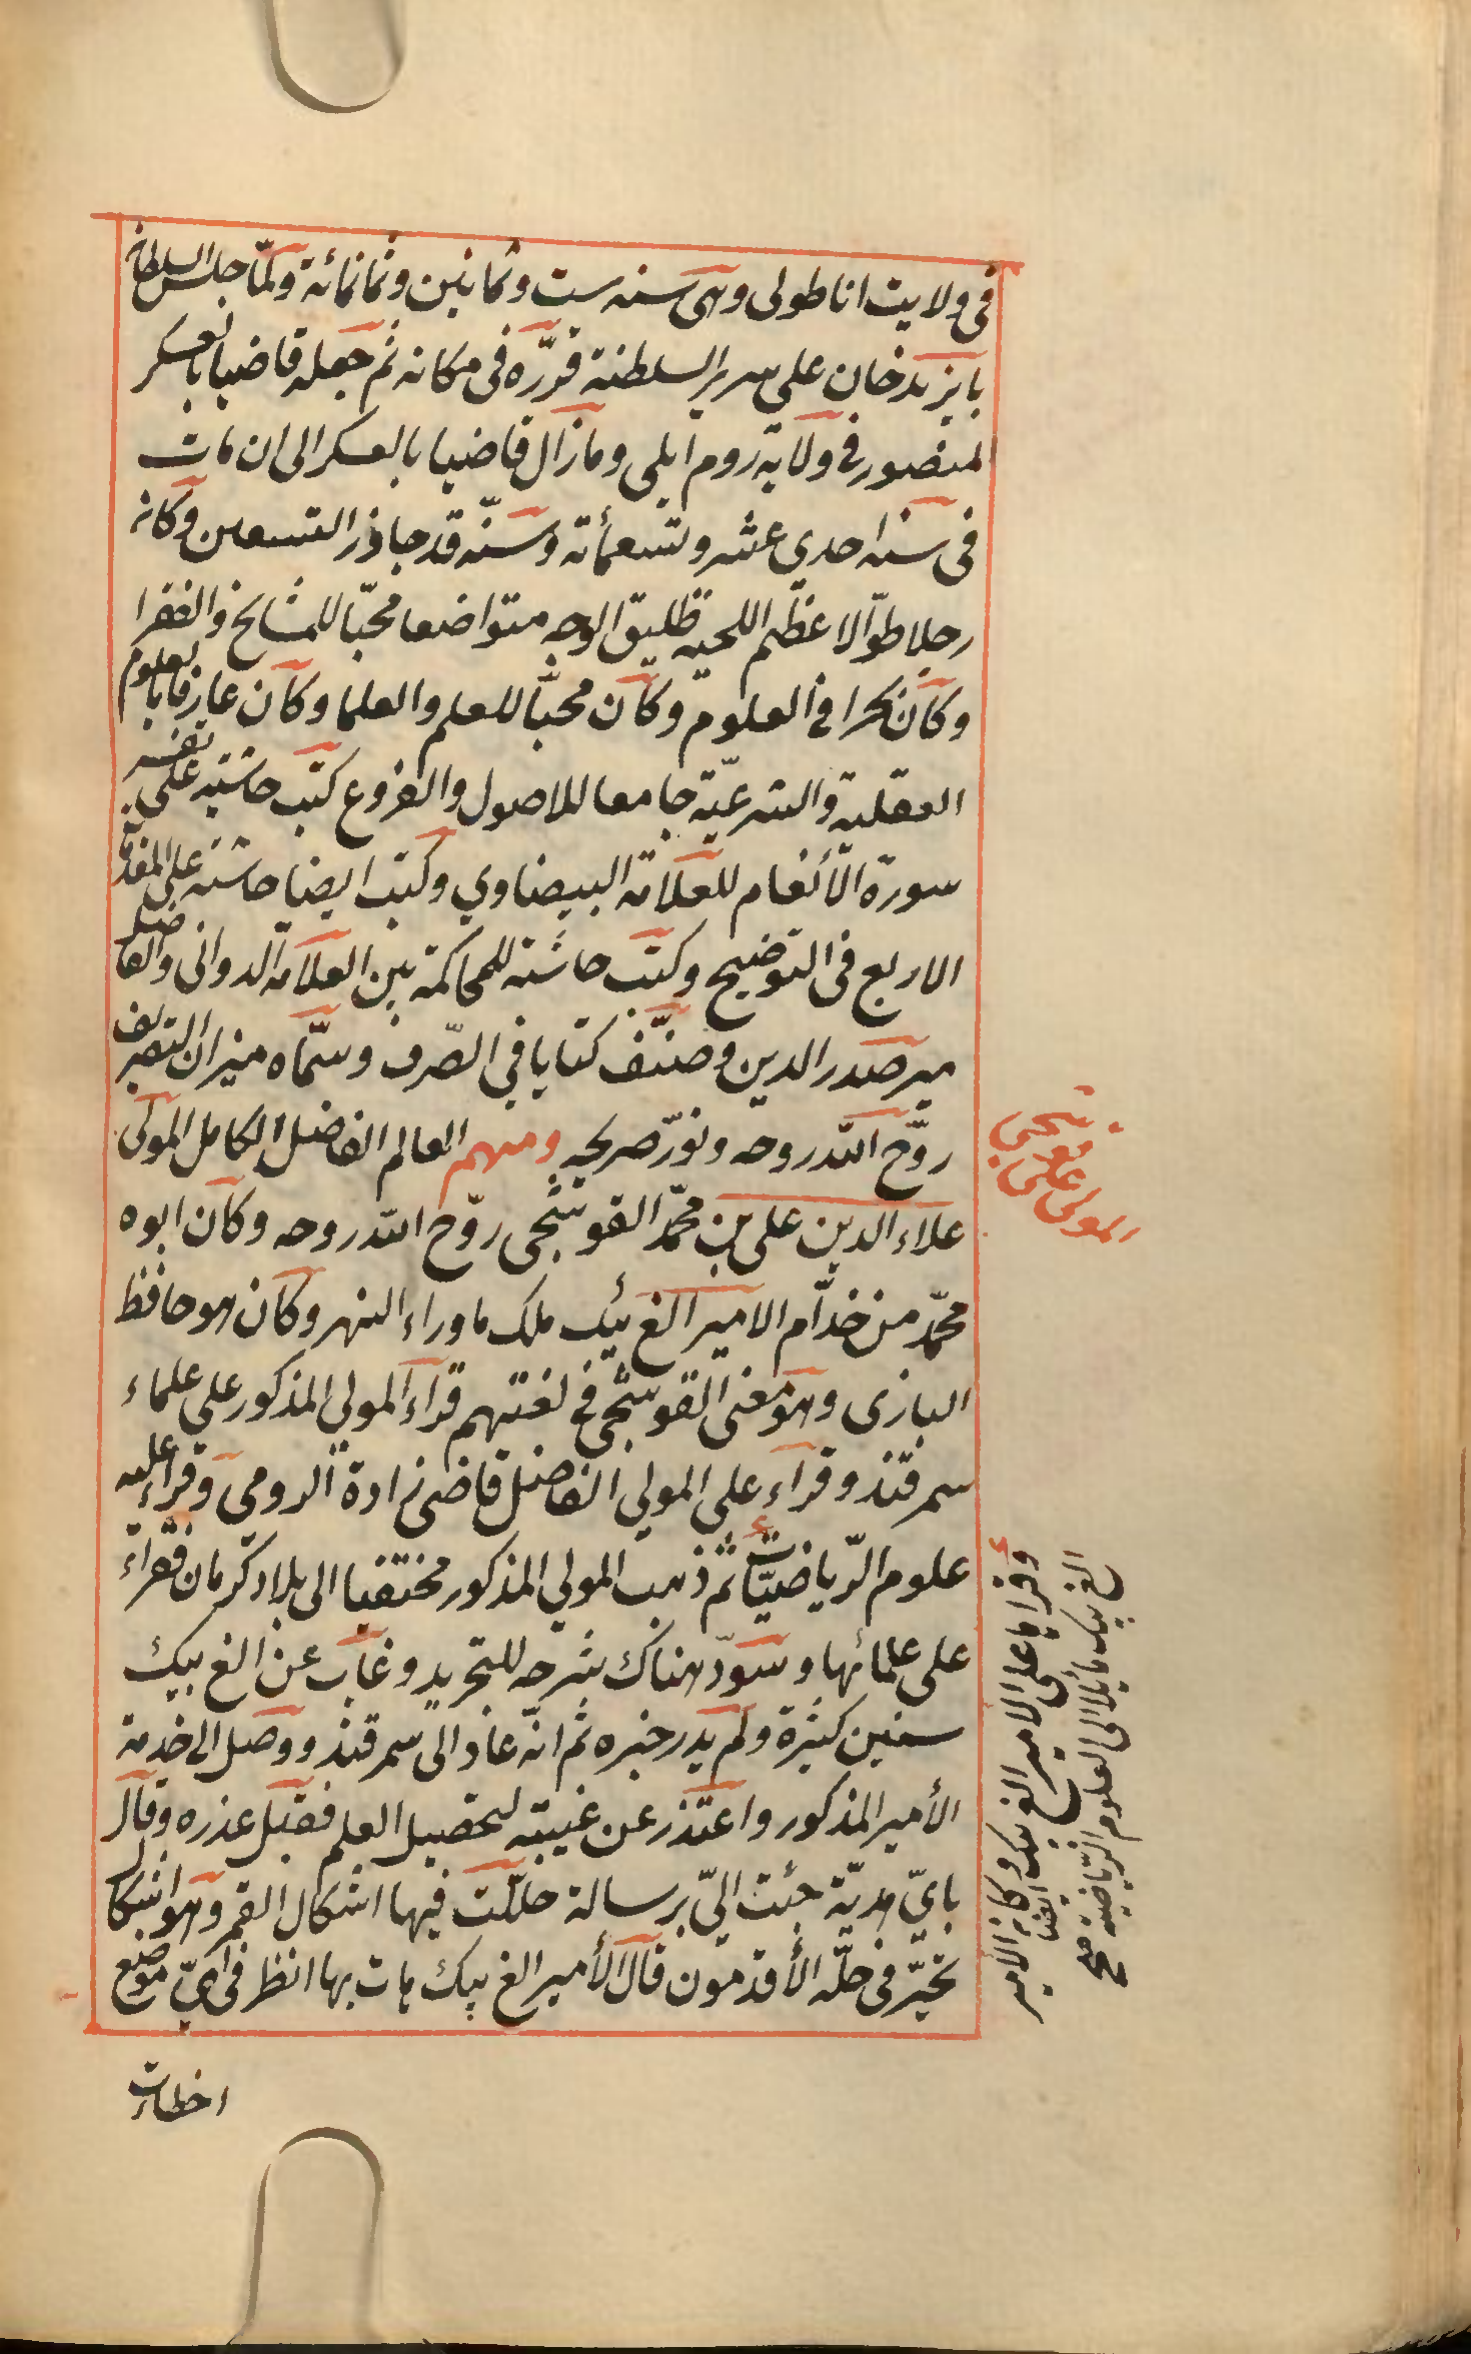 فى ولايت اناطولى وهى سنه ست وثمانين وثمانمائة ولمّا جلس السلطان
بايزيد خان على سرير السلطنة قرّره فى مكانه ثم جعله قاضيا بالعسكر
المنصور فى ولاية روم ايلى ومازال قاضيا بالعسكر الى ان مات
فى سنه احدى عشر وتسعمأته وسنّه قد جاوز التسعين وكان
رجلا طوّالا عظيم اللحيه طليق الوجه متواضعا محبّا للمشايخ والفقرا
وكان بحرا فى العلوم وكان محبّا للعلم والعلما وكان عارفا بالعلوم
العقلية والشرعيّة جامعا للاصول والفروع كتب حاشيه على تفسير
سورة الأنعام للعلامة البيضاوي وكتب ايضا حاشيه على المقدّمات
الاربع فى التوضيح وكتب حاشيه للمحاكمة بين العلامة الدوانى والفاضل
مير صدر الدين وصنّف كتابا في الصّرف وسمّاه ميزان التصريف
روّح الله روحه ونوّر ضريحه ومنهم العالم الفاضل الكامل المولى
علاء الدين على بن محمّد القوشجى روّح الله روحه وكان ابوه
محمّد من خدّام الامير الغ بيك ملك ماوراء النهر وكان هو حافظ
البازى وهو معنى القوشجى فى لغتهم قراء المولى المذكور على علماء
سمرقند وقراء على المولى الفاضل قاضى زادة الرومى وقراء عليه
علوم الرّياضيّات ثم ذهب المولي المذكور مختفيا الى بلاد كرمان فقراء
على علمائها وسوّد هناك شرحه للتجريد وغاب عن الغ بيك
سنين كثيرة ولم يدر خبره ثم انّه عاد الى سمرقند ووصل الى خدمة
الأمير المذكور واعتذر عن غيبته لتحصيل العلم فقبل عذره وقال
بايّ هديّة جئت اليّ برسالة حللت فيها اشكال القمر وهو اشكال
تحيّر فى حلّه الأقدمون قال الأمير الغ بيك هات بها انظر فى ايّ موضع
اخطاءت
المولى على
قوشجى
وقرا ها على الامير الغ بيك ايضا وكان الامير
الغ بيك مائلا الى العلوم الرّياضية صح